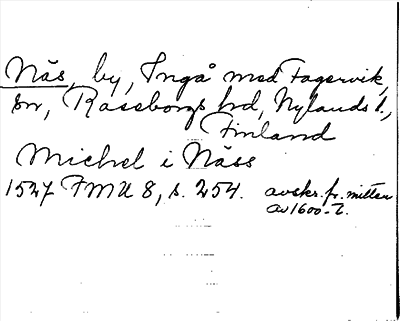 Näs, by, Ingå med Fagervik,
sn, Raseborgs hd, Nylands l.,
Finland
Michel i Näss
1527 FMU 8, s. 254. avskr. fr. mitten
av 1600-t.